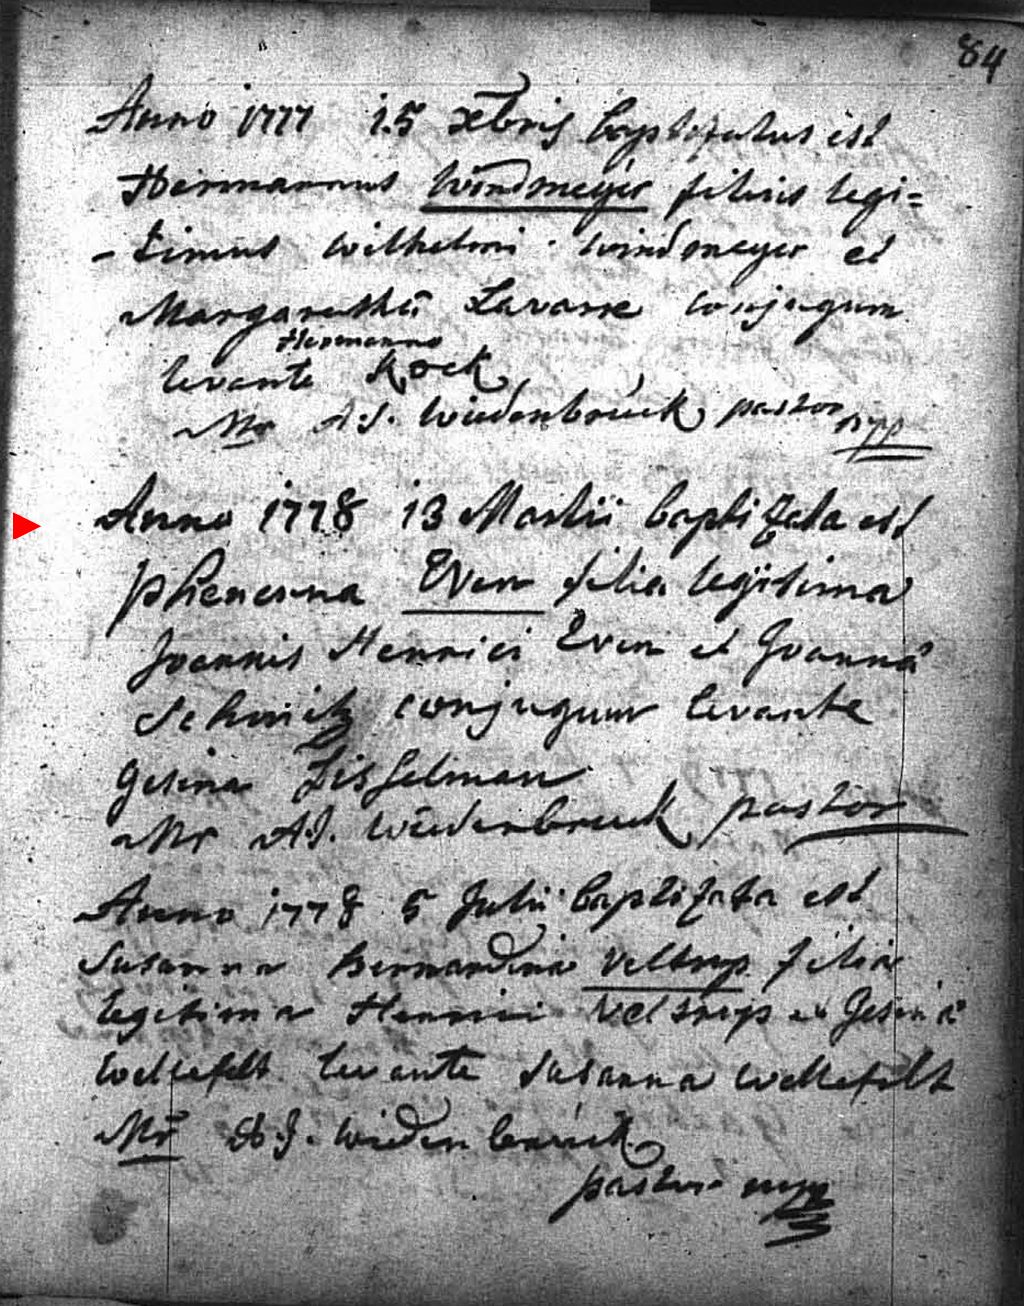 84
Anno 1777 15 xbris baptizatus est
Hermannus Windmeyer filius legi=
-timus Wilhelmi Windmeyer et
Margarethä Lavarre conjugum
Hermanno
levante Kock
Mr A J. Wiedenbrück pastor mpp
Anno 1778 13 Martii baptizata est
Phenenna Even filia legitima
Joannis Henrici Even et Joannä
Schmitz conjugum levante
Gesina Disselman
Mr A.J. Wiedenbruck pastor
Anno 1778 5 Julii baptizata est
Susanna Bernardina Veltrup filia
legitima Henrici Veltrup et Gesinä
Wellefelt levante Susanna Wellefelt
Mr A J. Wiedenbruck
pastor mpp